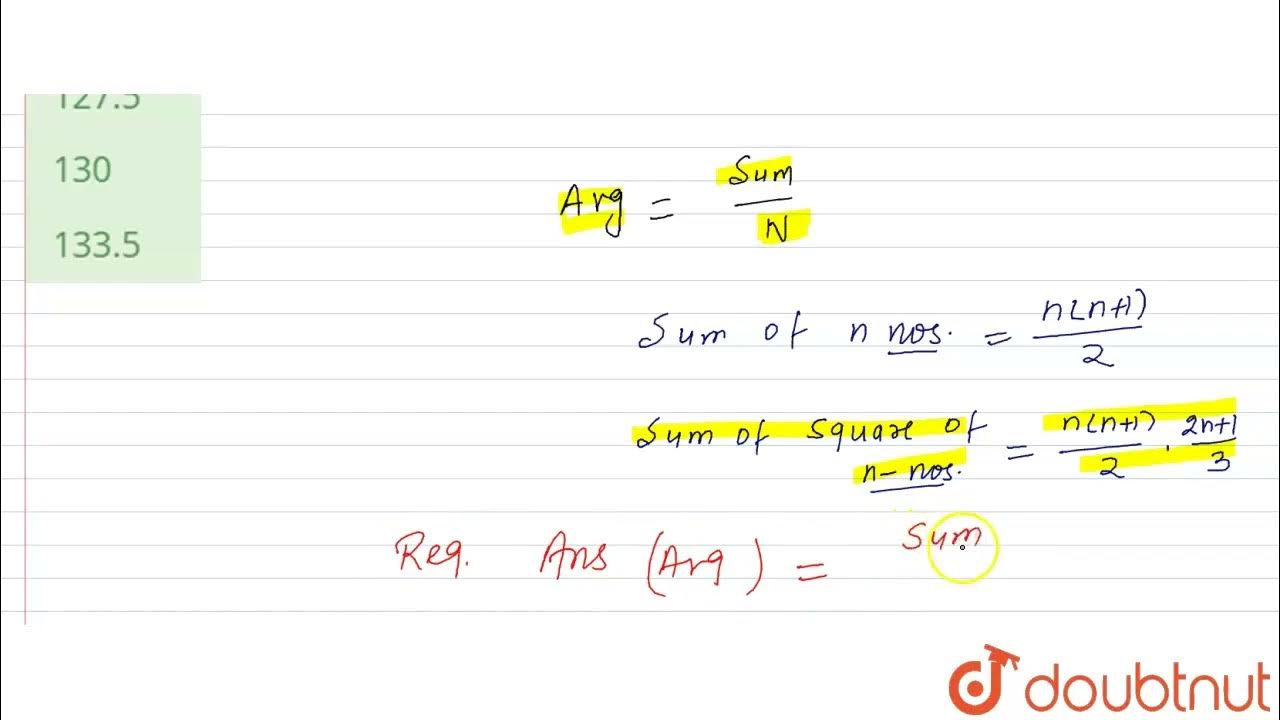 127.5
130
133.5
Avg = Sum / N
Sum of n nos. = n(n+1) / 2
Sum of square of n-nos. = n(n+1) / 2 . 2n+1 / 3
Req. Ans (Avg) = Sum
doubtnut